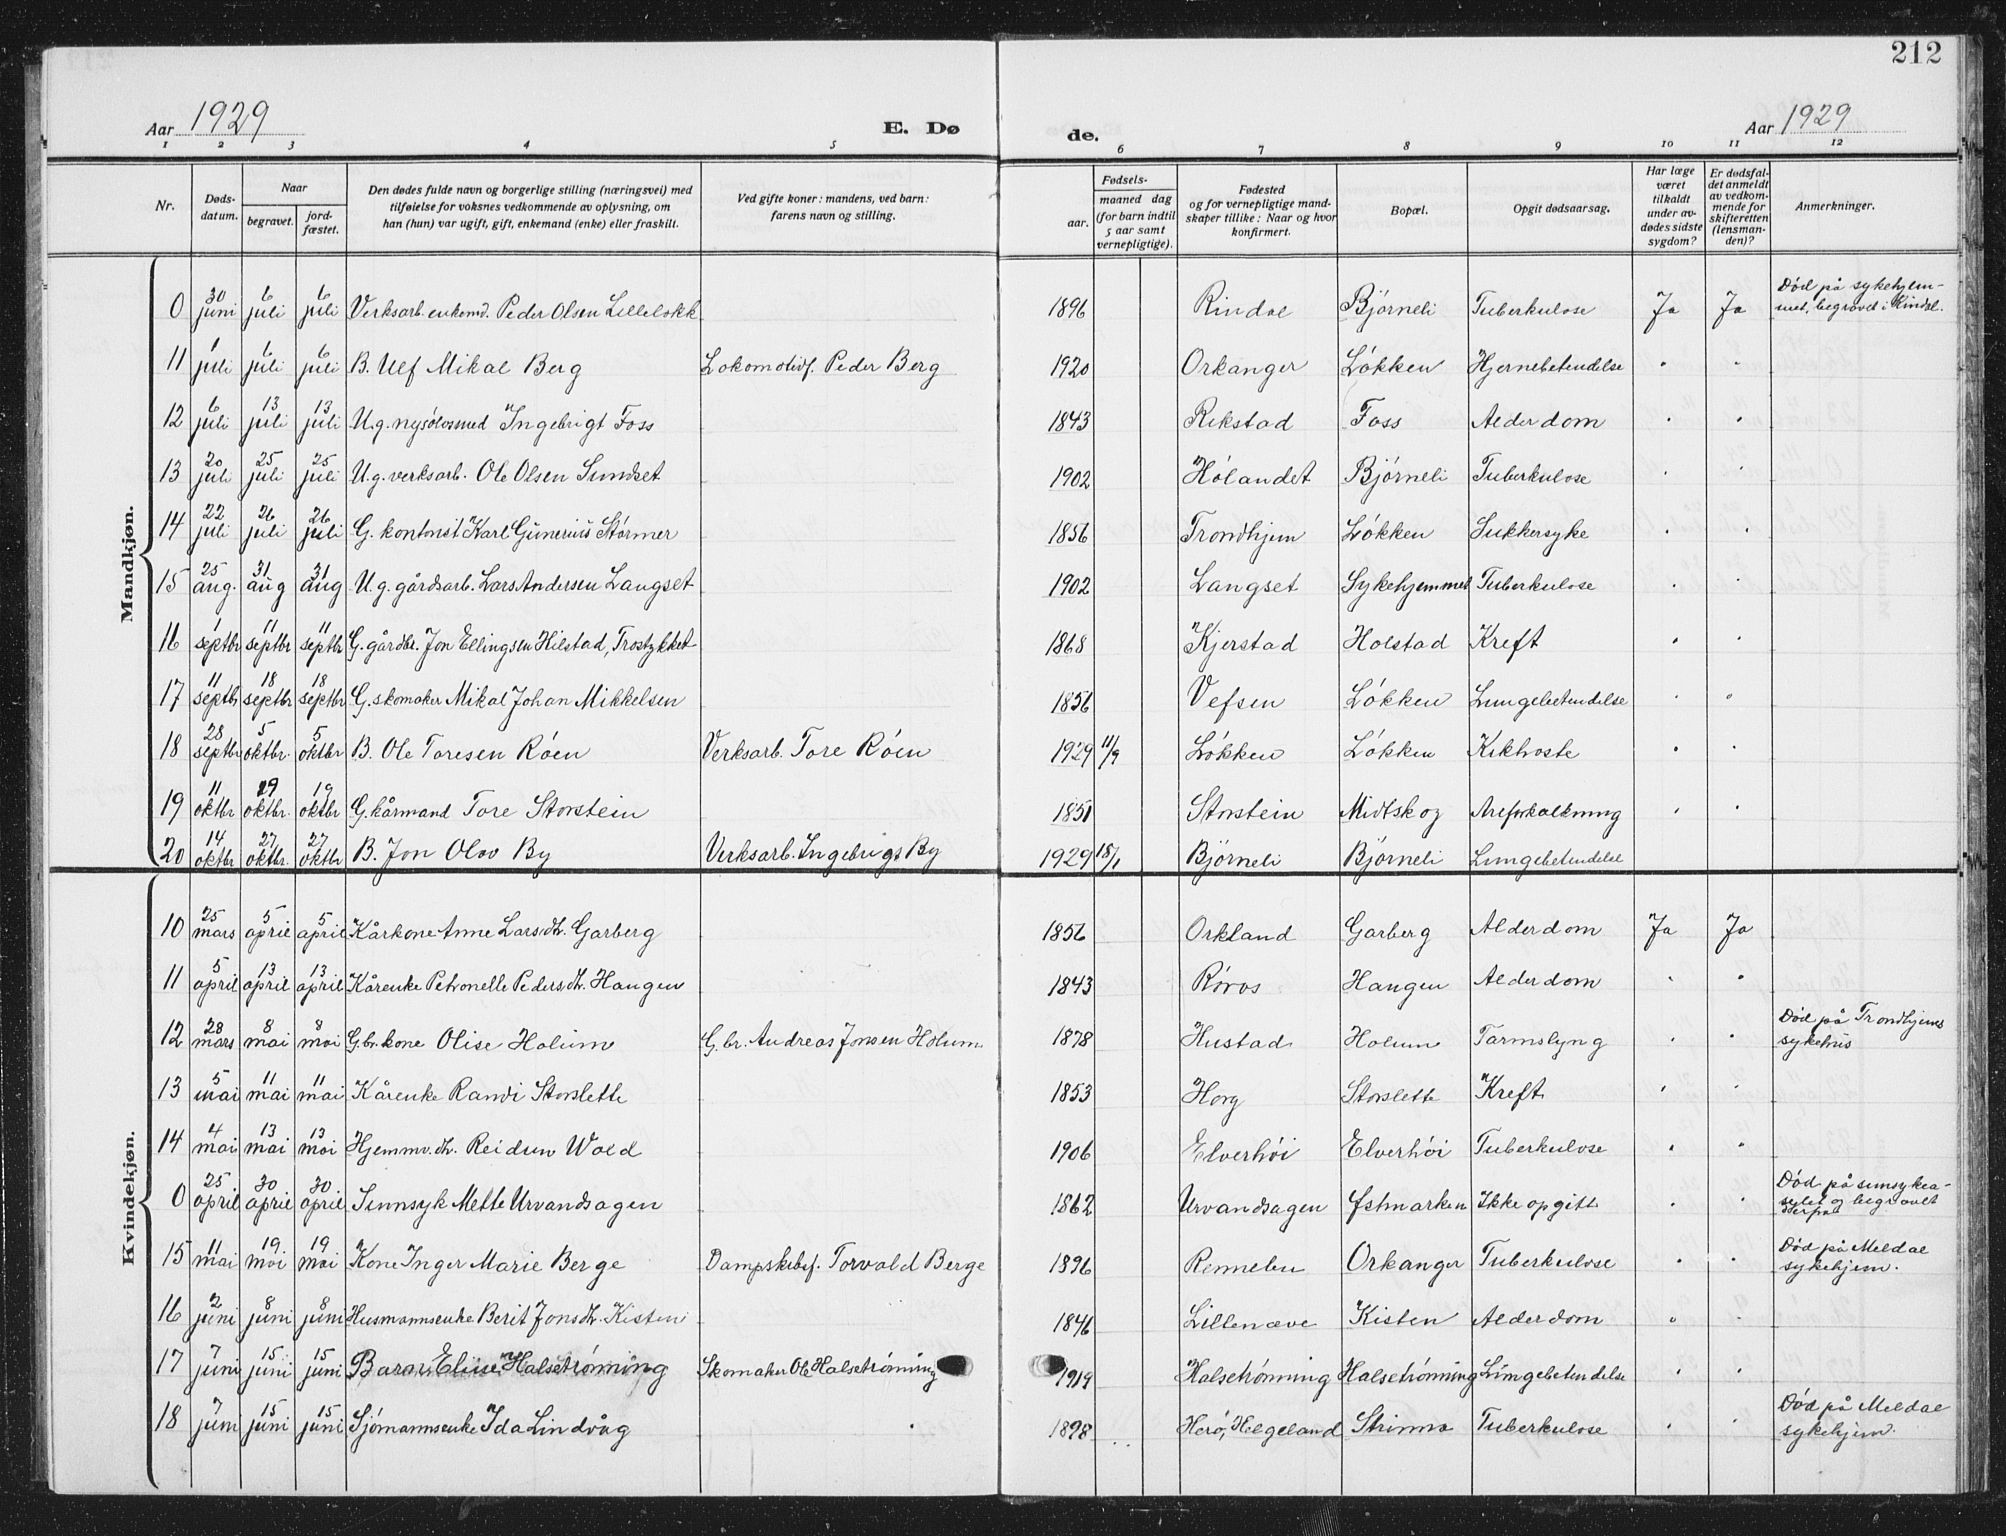 212
Aar 1929 E. Dø de. Aar 1929
1 2 3 4 5 6 7 8 9 10 11 12
Nr. | Døds-datum. | Naar begravet. | jord-fæstet. | Den dødes fulde navn og borgerlige stilling (næringsvei) med tilføielse for voksnes vedkommende av oplysning, om han (hun) var ugift, gift, enkemand (enke) eller fraskilt. | Ved gifte koner: mandens, ved barn: farens navn og stilling. | Fødsels- aar. | maaned dag (for barn indtil 5 aar samt vernepligtige). | Fødested og for vernepligtige mandskaper tillike: Naar og hvor konfirmert. | Bopæl. | Opgit dødsaarsag. | Har læge været tilkaldt under avdødes sidste sygdom? | Er dødsfaldet anmeldt av vedkommende for skifteretten (lensmanden)? | Anmerkninger.
Mandkjøn.
0 | 30 juni | 6 juli | 6 juli | Verksarb. enkemd. Peder Olsen Lillelökk | 1896 | Rindal | Björneli | Tuberkulose | Ja | Ja | Död på sykehjemmet, begravet i Rindal.
11 | 1 juli | 6 juli | 6 juli | B. Ulf Mikal Berg | Lokomotivf. Peder Berg | 1920 | Orkanger | Lökken | Hjernebetendelse | " | "
12 | 6 juli | 13 juli | 13 juli | U.g. nysölosmed Ingebrigt Foss | 1843 | Rikstad | Foss | Alderdom | " | "
13 | 20 juli | 25 juli | 25 juli | U.g. verksarb. Ole Olsen Sundset | 1902 | Hölandet | Björneli | Tuberkulose | " | "
14 | 22 juli | 26 juli | 26 juli | G. kontorist Karl Gunerius Störmer | 1856 | Trondhjem | Lökken | Sukkersyke | " | "
15 | 25 aug. | 31 aug | 31 aug | U.g. gårdsarb. Lars Andersen Langset | 1902 | Langset | Sykehjemmet | Tuberkulose | " | "
16 | 1 septbr | 11 septbr | 11 septbr | G. gårdbr. Jon Ellingsen Hilstad, Trostykket | 1868 | Kjerstad | Holstad | Kreft | " | "
17 | 11 septbr | 18 septbr | 18 septbr | G. skomaker Mikal Johan Mikkelsen | 1856 | Vefsen | Lökken | Lungebetendelse | " | "
18 | 28 septbr | 5 oktbr. | 5 oktbr | B. Ole Toresen Röen | Verksarb. Tore Röen | 1929 | 11/9 | Lökken | Lökken | Kikhoste | " | "
19 | 11 oktbr | 19 oktbr. | 19 oktbr | G. kårmand Tore Storstein | 1851 | Storstein | Midtskog | Areforkalkning | " | "
20 | 14 oktbr | 27 oktbr. | 27 oktbr | B. Jon Olav By | Verksarb. Ingebrigt By | 1929 | 18/1 | Björneli | Björneli | Lungebetendelse
Kvindekjøn.
10 | 25 mars | 5 april | 5 april | Kårkone Anne Larsdtr. Garberg | 1856 | Orkland | Garberg | Alderdom | Ja | Ja
11 | 5 april | 13 april | 13 april | Kårenke Petronelle Pedersdtr. Haugen | 1843 | Röros | Haugen | Alderdom | " | "
12 | 28 mars | 8 mai | 8 mai | G.br.kone Olise Holum | G.br. Andreas Jonsen Holum | 1878 | Hustad | Holum | Tarmslyng | " | " | Död på Trondhjems sykehus
13 | 5 mai | 11 mai | 11 mai | Kårenke Randi Storslette | 1853 | Horg | Storslette | Kreft | " | "
14 | 4 mai | 13 mai | 13 mai | Hjemmv. dtr. Reidun Wold | 1906 | Elverhöi | Elverhöi | Tuberkulose | " | "
0 | 25 april | 30 april | 30 april | Sinnsyk Mette Urvandsagen | 1862 | Urvandsagen | Østmarken | Ikke opgitt | " | " | Död på sinnsykeasylet og begravet derpå
15 | 11 mai | 19 mai | 19 mai | Kone Inger Marie Berge | Dampskibsf. Torvald Berge | 1896 | Rennebu | Orkanger | Tuberkulose | " | " | Död på Meldal sykehjem.
16 | 2 juni | 8 juni | 8 juni | Husmannsenke Berit Jonsdtr. Kisten | 1846 | Lillenæve | Kisten | Alderdom | " | "
17 | 7 juni | 15 juni | 15 juni | Barn Elise Halsetrönning | Skomaker Ole Halsetrönning | 1919 | Halsetrönning | Halsetrönning | Lungebetendelse | " | "
18 | 7 juni | 15 juni | 15 juni | Sjömannsenke Ida Lindvåg | 1898 | Herö, Helgeland | Strinna | Tuberkulose | " | " | Död på Meldal sykehjem.